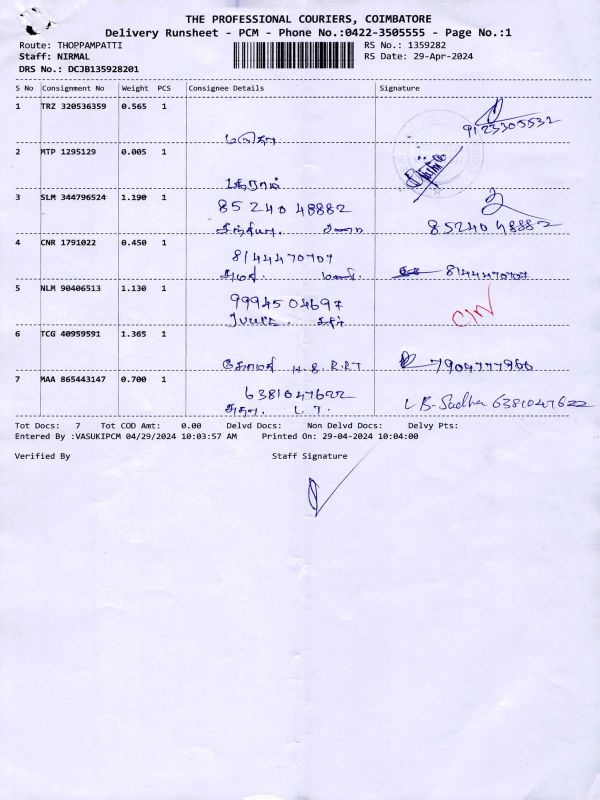 THE PROFESSIONAL COURIERS, COIMBATORE
Delivery Runsheet - PCM - Phone No.:0422-3505555 - Page No.:1
Route: THOPPAMPATTI
RS No.: 1359282
Staff: NIRMAL
RS Date: 29-Apr-2024
DRS No.: DCJB135928201
S No Consignment No Weight PCS Consignee Details Signature
1 TRZ 320536359 0.565 1
9123305532
2 MTP 1295129 0.005 1
3 SLM 344796524 1.190 1 85240 48882
85240 48882
4 CNR 1791022 0.450 1
8144470707
8144470707
5 NLM 90406513 1.130 1
9994504697
C/N
6 TCG 40959591 1.365 1
கோமதி H.S. R.RT 7904777966
7 MAA 865443147 0.700 1
6381047622
L B-Sudha 6381047622
Tot Docs: 7 Tot COD Amt: 0.00 Delvd Docs: Non Delvd Docs: Delvy Pts:
Entered By :VASUKIPCM 04/29/2024 10:03:57 AM Printed On: 29-04-2024 10:04:00
Verified By Staff Signature